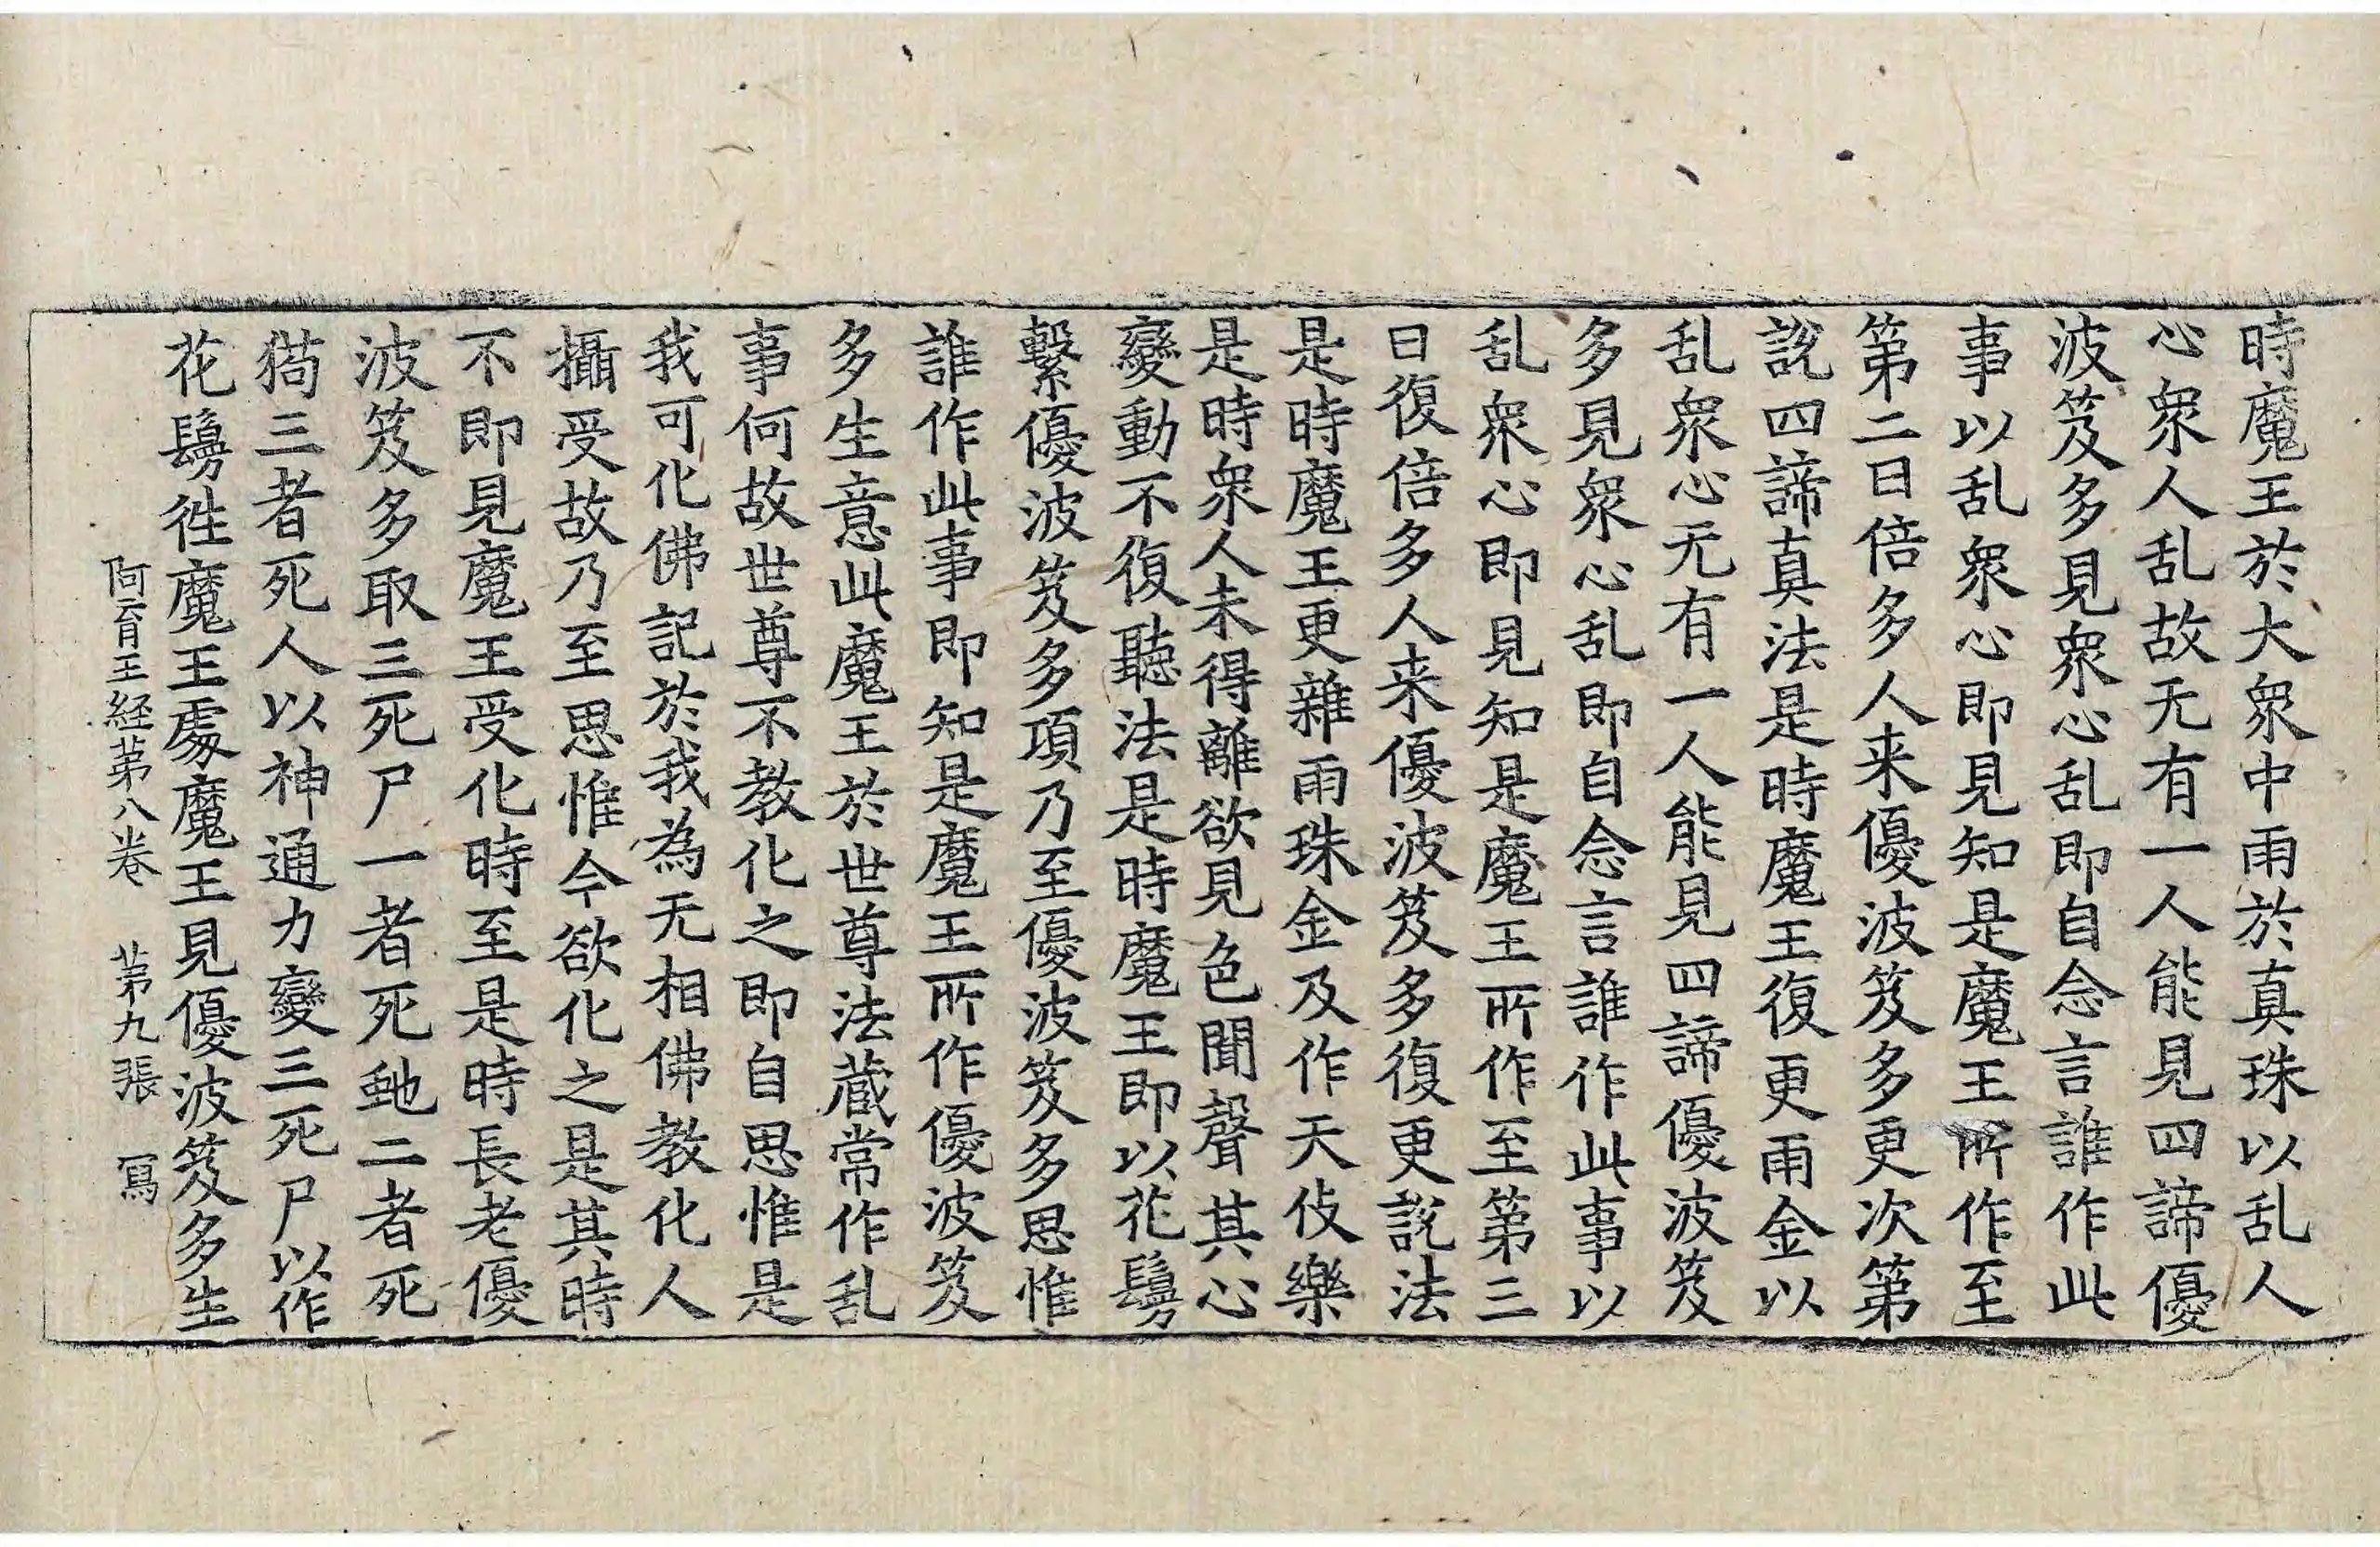 時魔王於大衆中雨於真珠以乱人
心衆人乱故无有一人能見四諦優
波笈多見衆心乱即自念言誰作此
事以乱衆心即見知是魔王所作至
第二日倍多人来優波笈多更次第
說四諦真法是時魔王復更雨金以
乱衆心无有一人能見四諦優波笈
多見衆心乱即自念言誰作此事以
乱衆心即見知是魔王所作至第三
日復倍多人来優波笈多復更說法
是時魔王更雜雨珠金及作天伎樂
是時衆人未得離欲見色聞聲其心
變動不復聽法是時魔王即以花鬘
繫優波笈多項乃至優波笈多思惟
誰作此事即知是魔王所作優波笈
多生意此魔王於世尊法蔵常作乱
事何故世尊不教化之即自思惟是
我可化佛記於我為无相佛教化人
攝受故乃至思惟今欲化之是其時
不即見魔王受化時至是時長老優
波笈多取三死尸一者死虵二者死
猗三者死人以神通力變三死尸以作
花鬘徃魔王處魔王見優波笈多生
阿育王経苐八卷 苐九張 冩